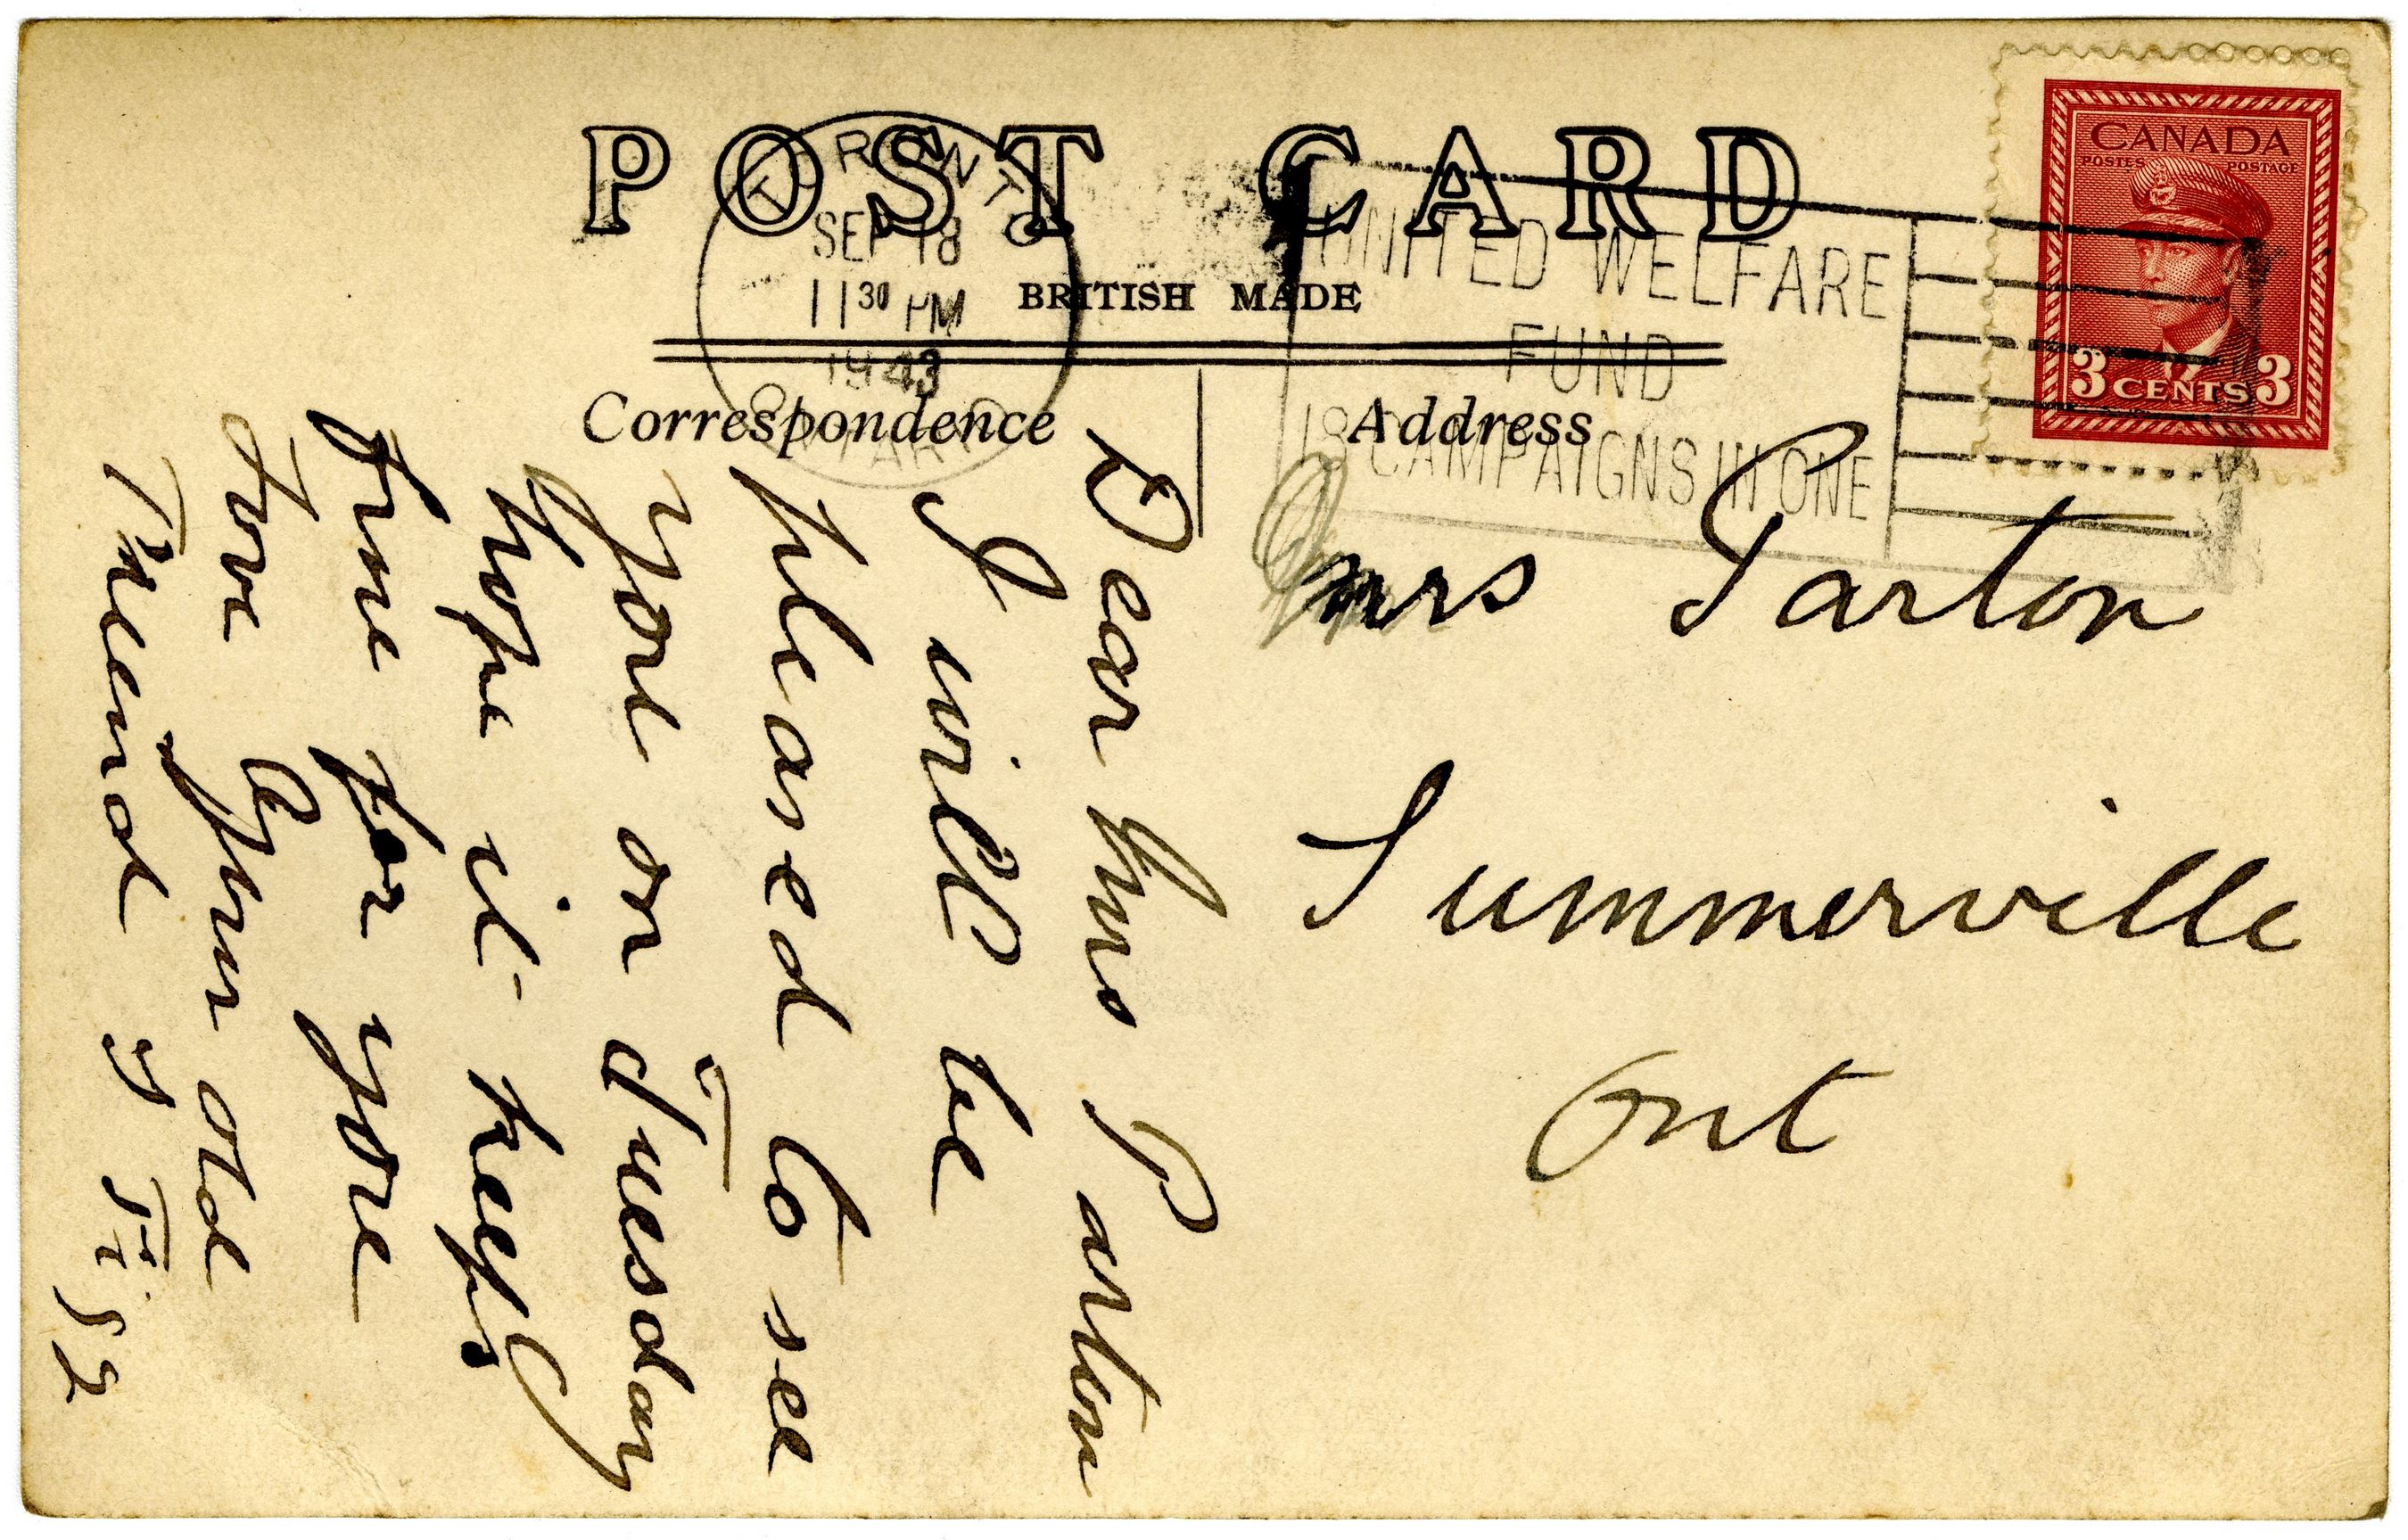 POST CARD
BRITISH MADE
Correspondence
Address
TORONTO
SEP 18
11 30 PM
1943
ONTARIO
UNITED WELFARE
FUND
CAMPAIGNS IN ONE
CANADA
POSTES POSTAGE
3 CENTS 3
mrs Parton
Summerville
Ont
Dear mrs Parton
I will be
pleased to see
you on Tuesday
hope it keeps
fine for you
love your old